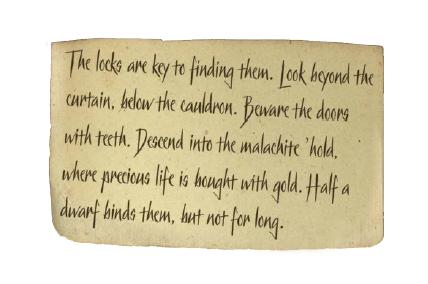 The locks are key to finding them. Look beyond the
curtain, below the cauldron. Beware the doors
with teeth. Descend into the malachite 'hold,
where precious life is bought with gold. Half a
dwarf binds them, but not for long.